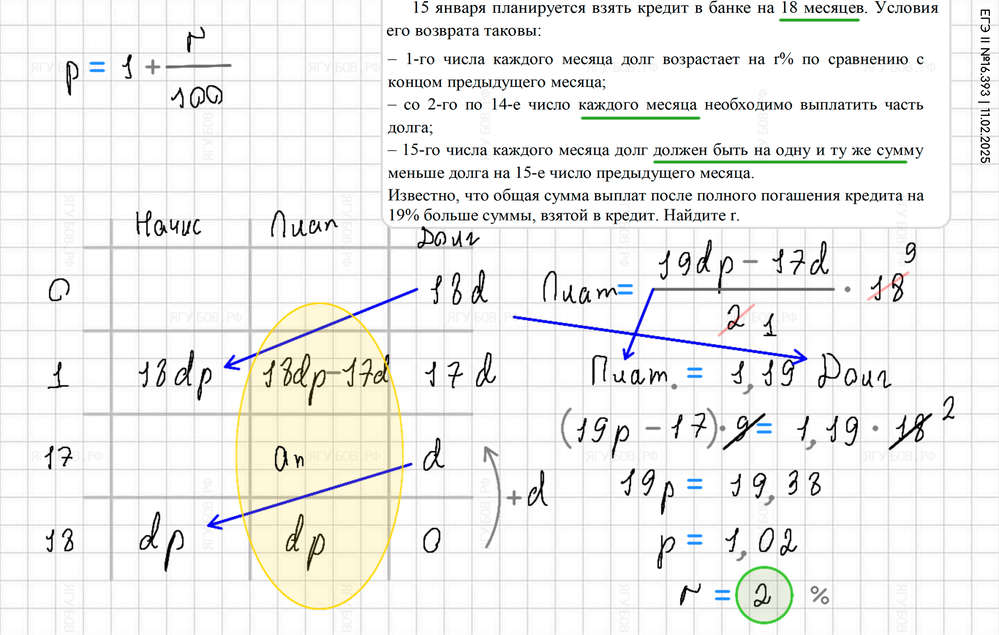 15 января планируется взять кредит в банке на 18 месяцев. Условия
его возврата таковы:
– 1-го числа каждого месяца долг возрастает на r% по сравнению с
концом предыдущего месяца;
– со 2-го по 14-е число каждого месяца необходимо выплатить часть
долга;
– 15-го числа каждого месяца долг должен быть на одну и ту же сумму
меньше долга на 15-е число предыдущего месяца.
Известно, что общая сумма выплат после полного погашения кредита на
19% больше суммы, взятой в кредит. Найдите r.
ЕГЭ II №16.393 | 11.02.2025
p = 1 + r/100
Начис Плат Долг
0 18d
1 18dp 18dp-17d 17d
17 an d
18 dp dp 0
+d
Плат = (19dp - 17d)/2 · 18
1 9
Плат. = 1,19 Долг
(19p - 17) · 9 = 1,19 · 18 2
19p = 19,38
p = 1,02
r = 2 %
ЯГУБОВ.РФ